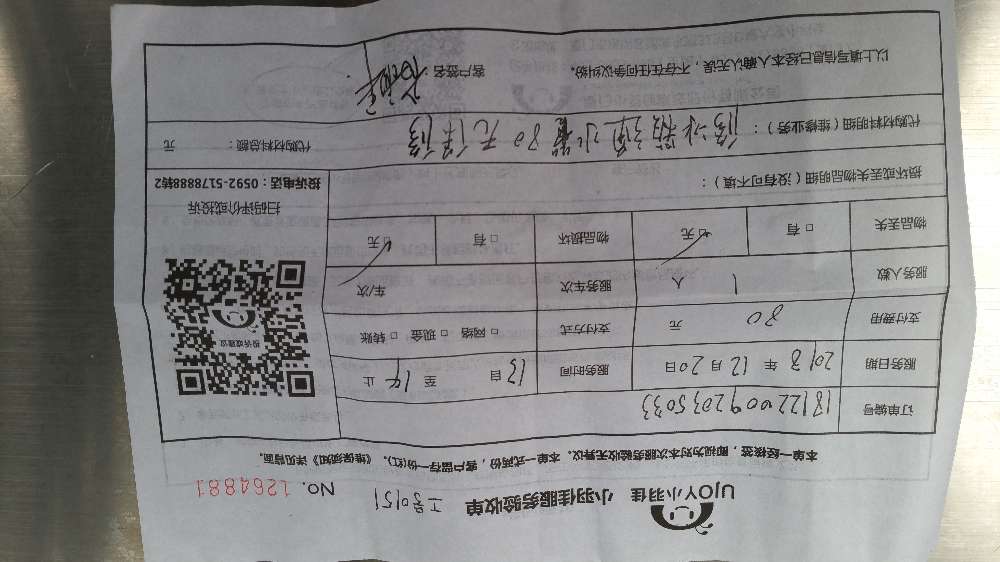 UJOY小羽佳 小羽佳服务验收单 工号0151 NO. 1264881
本单一经核签，即视为对本次服务验收无异议。本单一式两份，客户留存一份(红)。《维保须知》详见背面。
订单编号 1812200092035033
服务日期 2018 年 12 月 20 日 服务时间 13 自 至 14 止
支付费用 80 元 支付方式 □ 网络 □ 现金 □ 转账
服务人数 1 人 服务车次 车/次
物品丢失 □ 有 ☑ 无 物品损坏 □ 有 ☑ 无
损坏或丢失物品明细（没有可不填）：
投诉或建议
扫码评价或投诉
投诉电话：0592-5178888转2
代购材料明细（维修业务）： 80元
代购材料总额： 元
以上填写信息已经本人确认无误，不存在任何争议纠纷。 客户签名：